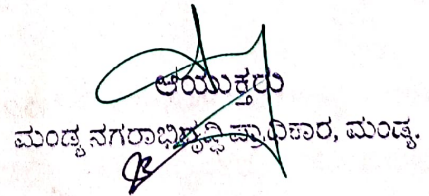 ಆಯುಕ್ತರು
ಮಂಡ್ಯ ನಗರಾಭಿವೃದ್ಧಿ ಪ್ರಾಧಿಕಾರ, ಮಂಡ್ಯ.